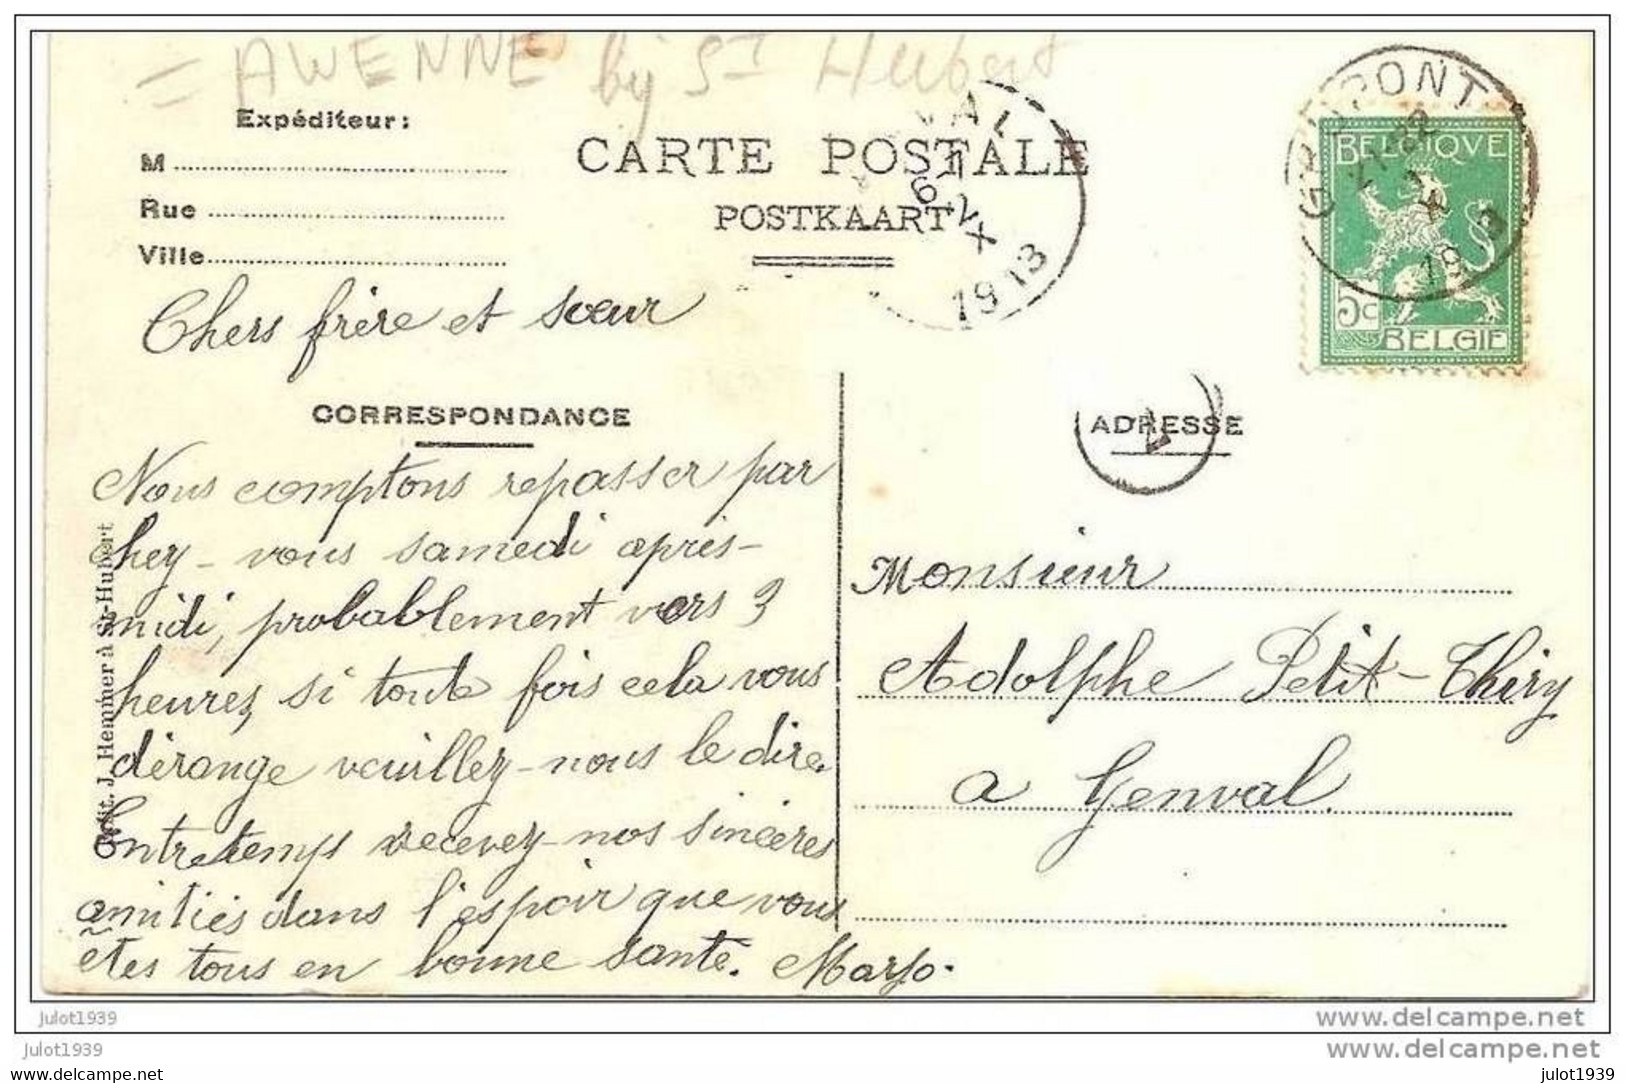 = AWENNE bij St Hubert
Expéditeur:
M
Rue
Ville
CARTE POSTALE
POSTKAART
VAL
6
X
1913
GRUPONT
X
BELGIQVE
5c
BELGIE
Chers frère et sœur
CORRESPONDANCE
Nous comptons repasser par
chez-vous samedi après-
midi, probablement vers 3
heures, si toute fois cela vous
dérange veuillez-nous le dire.
Entretemps recevez-nos sincères
amitiés dans l'espoir que vous
êtes tous en bonne santé.
Edit. J. Hemmer à St-Hubert
ADRESSE
1
Monsieur
Adolphe Petit-Thiry
a Genval.
julot1939
julot1939
www.delcampe.net
www.delcampe.net
julot1939
julot1939